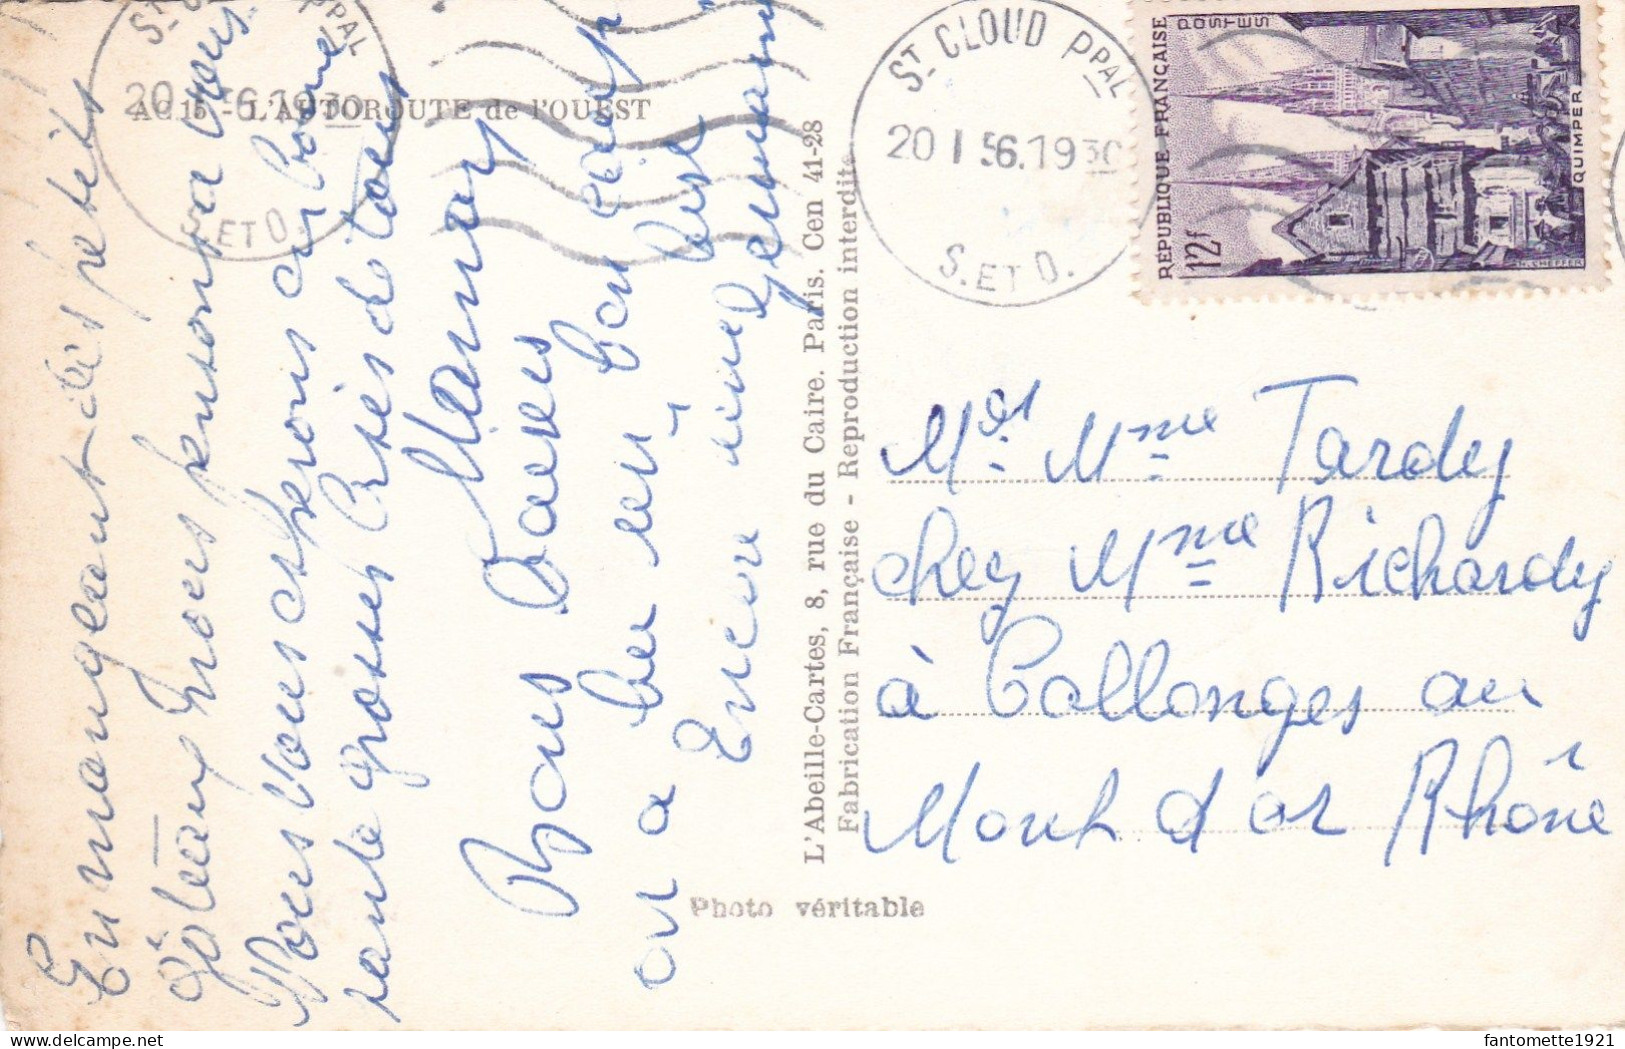 AC 15 - L'AUTOROUTE de l'OUEST
ST CLOUD PPAL
20 I 56.1930
S. ET O.
REPUBLIQUE FRANÇAISE
POSTES
12f
QUIMPER
En mangeant des petits
gâteaux nous pensons à vous.
Nous vous espérons en bonne
santé grosses bises de tous
Mamy
Bons baisers
on a bu un bon café
Encore une bise
Germaine
L'Abeille-Cartes, 8, rue du Caire. Paris. Cen 41-28
Fabrication Française - Reproduction interdite
Photo véritable
Mr et Mme Tardy
chez Mme Richardy
à Collonges au
Mont d'or Rhône
delcampe.net
fantomette1921